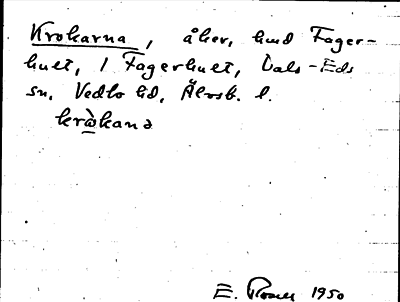 Krokarna, åker, hmd Fager-
hult, 1 Fagerhult, Dals-Eds
sn, Vedbo hd, Älvsb. l.
kròkana
E. 1950